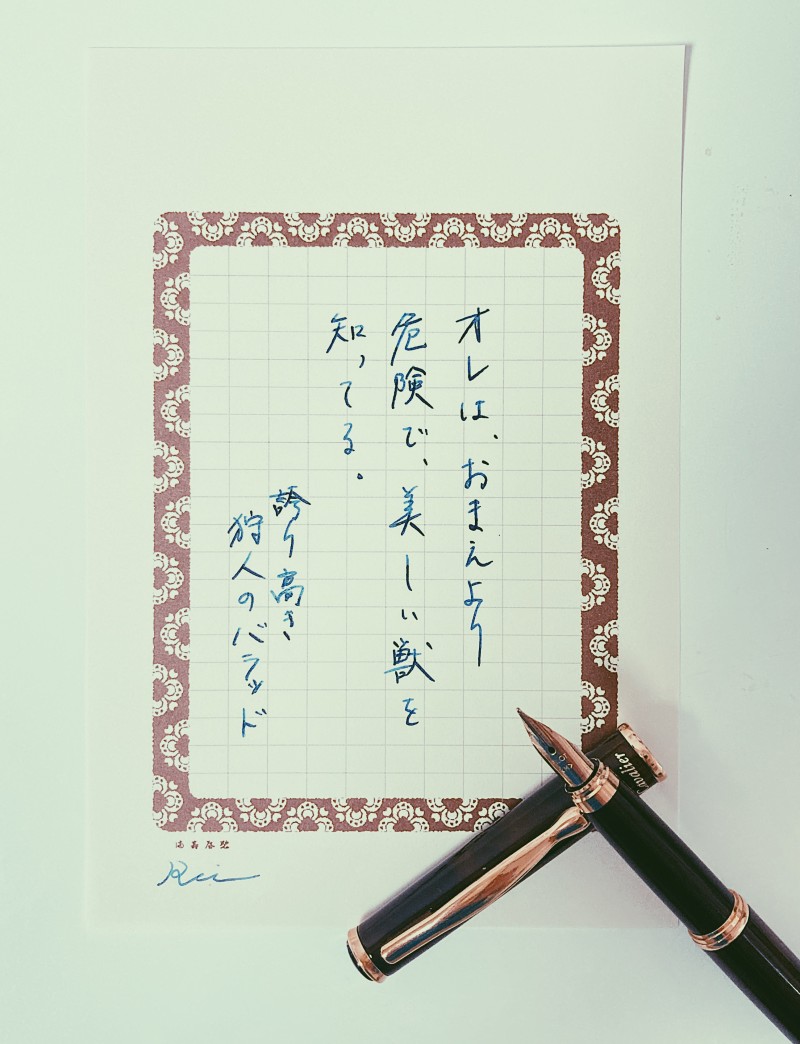 オレは、おまえより
危険で、美しい獣を
知ってる。
誇り高き、
狩人のバラッド
Rii
Cavalier